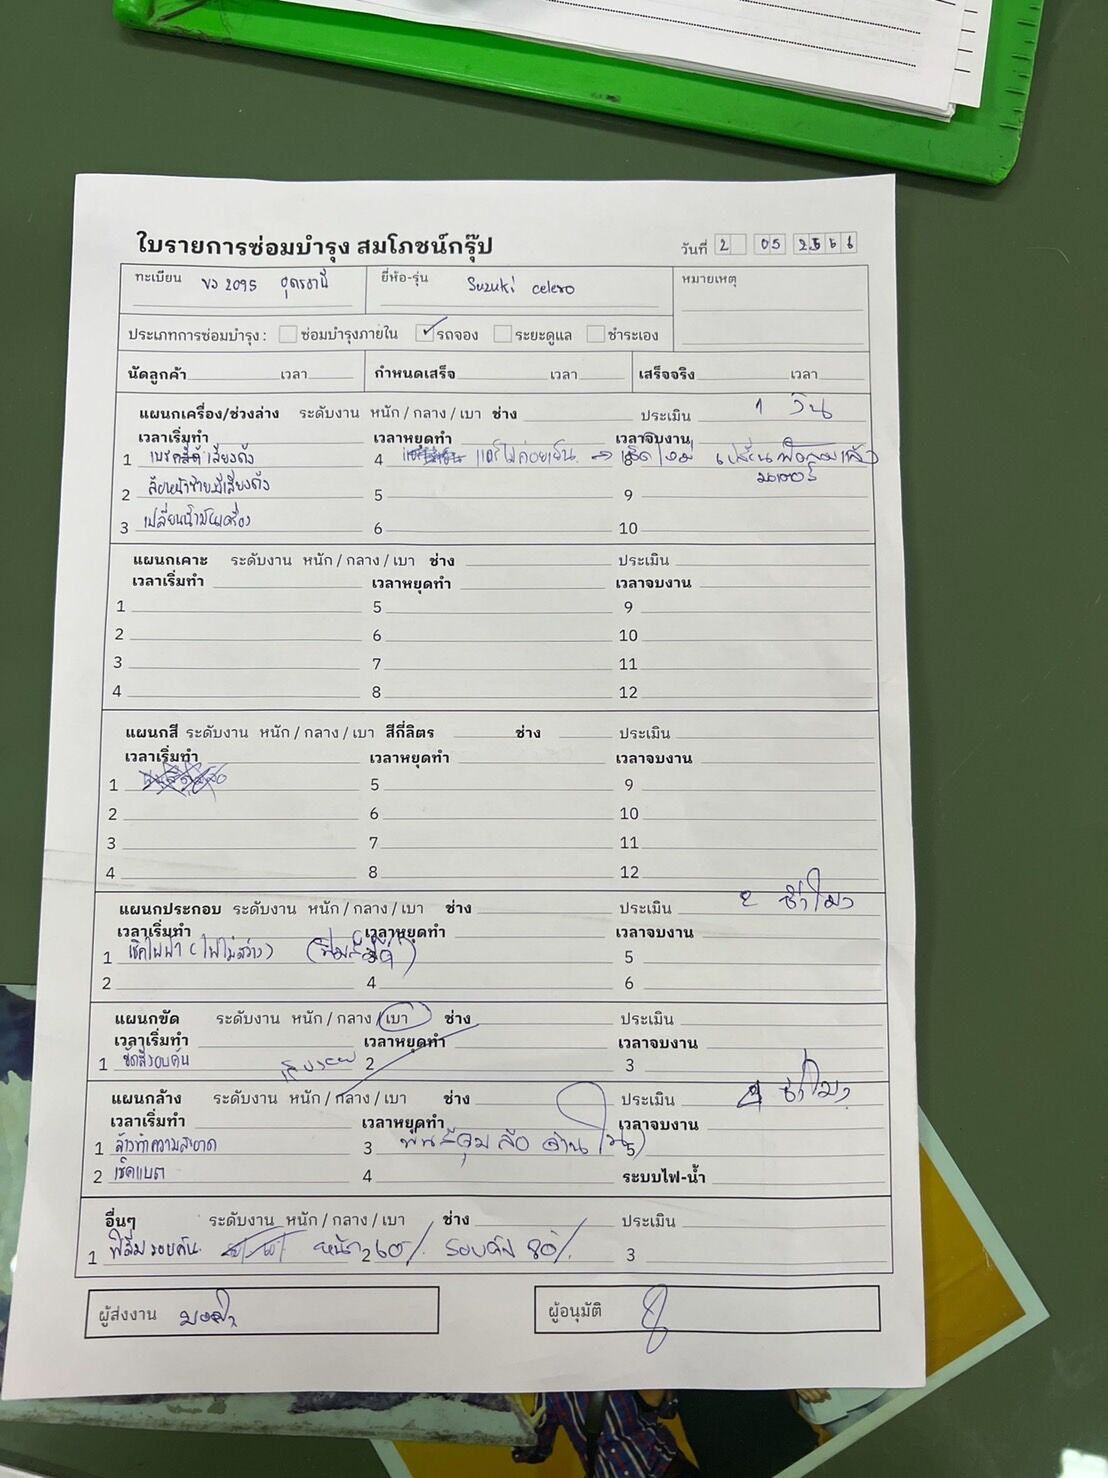 ใบรายการซ่อมบำรุง สมโภชน์กรุ๊ป
วันที่ 2 05 2566
ทะเบียน ขง 2095 อุดรธานี ยี่ห้อ-รุ่น Suzuki celero หมายเหตุ
ประเภทการซ่อมบำรุง : ซ่อมบำรุงภายใน ✓ รถจอง ระยะดูแล ชำระเอง
นัดลูกค้า เวลา กำหนดเสร็จ เวลา เสร็จจริง เวลา
แผนกเครื่อง/ช่วงล่าง ระดับงาน หนัก / กลาง / เบา ช่าง ประเมิน 1 วัน
เวลาเริ่มทำ เวลาหยุดทำ เวลาจบงาน
1 เบรคสีด้เสียงดัง 4 แอร์ไม่ค่อยเย็น → 8 เปลี่ยนพัดลมแล้ว
มอเตอร์
2 ล้อหน้าซ้ายมีเสียงดัง 5 9
3 เปลี่ยนน้ำมันเครื่อง 6 10
แผนกเคาะ ระดับงาน หนัก / กลาง / เบา ช่าง ประเมิน
เวลาเริ่มทำ เวลาหยุดทำ เวลาจบงาน
1 5 9
2 6 10
3 7 11
4 8 12
แผนกสี ระดับงาน หนัก / กลาง / เบา สีกี่ลิตร ช่าง ประเมิน
เวลาเริ่มทำ เวลาหยุดทำ เวลาจบงาน
1 5 9
2 6 10
3 7 11
4 8 12
แผนกประกอบ ระดับงาน หนัก / กลาง / เบา ช่าง ประเมิน 2 ชั่วโมง
เวลาเริ่มทำ เวลาหยุดทำ เวลาจบงาน
1 เช็คไฟฟ้า (ไฟไม่สว่าง) 3 5
2 4 6
แผนกขัด ระดับงาน หนัก / กลาง / เบา ช่าง ประเมิน
เวลาเริ่มทำ เวลาหยุดทำ เวลาจบงาน
1 ขัดสีรอบคัน 2 3
แผนกล้าง ระดับงาน หนัก / กลาง / เบา ช่าง ประเมิน 2 ชั่วโมง
เวลาเริ่มทำ เวลาหยุดทำ เวลาจบงาน
1 ล้างทำความสะอาด 3 พ่นสีซุ้มล้อด้านใน 5
2 เช็คแบต 4 ระบบไฟ-น้ำ
อื่นๆ ระดับงาน หนัก / กลาง / เบา ช่าง ประเมิน
1 ฟิล์มรอบคัน หน้า 2 60% รอบคัน 80% 3
ผู้ส่งงาน ผู้อนุมัติ